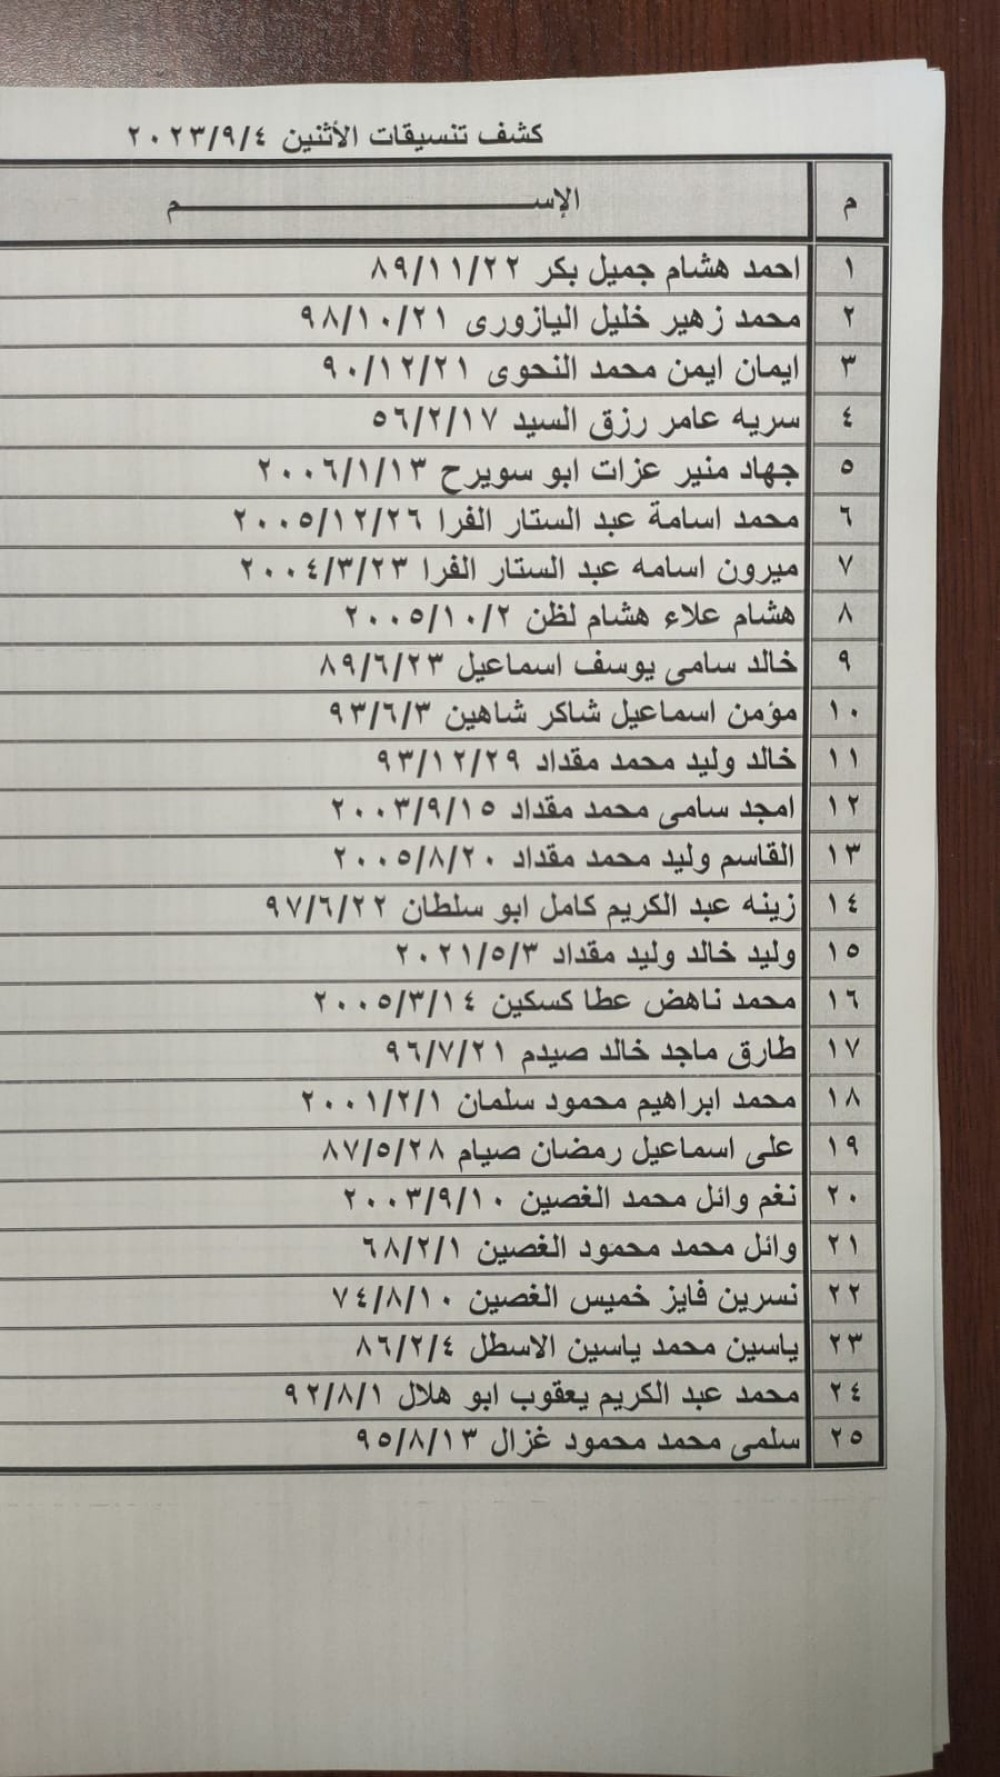 كشف تنسيقات الأثنين ٢٠٢٣/٩/٤
م الإســـــــــــــــــــم
١ احمد هشام جميل بكر ٨٩/١١/٢٢
٢ محمد زهير خليل اليازورى ٩٨/١٠/٢١
٣ ايمان ايمن محمد النحوى ٩٠/١٢/٢١
٤ سريه عامر رزق السيد ٥٦/٢/١٧
٥ جهاد منير عزات ابو سويرح ٢٠٠٦/١/١٣
٦ محمد اسامة عبد الستار الفرا ٢٠٠٥/١٢/٢٦
٧ ميرون اسامه عبد الستار الفرا ٢٠٠٤/٣/٢٣
٨ هشام علاء هشام لظن ٢٠٠٥/١٠/٢
٩ خالد سامى يوسف اسماعيل ٨٩/٦/٢٣
١٠ مؤمن اسماعيل شاكر شاهين ٩٣/٦/٣
١١ خالد وليد محمد مقداد ٩٣/١٢/٢٩
١٢ امجد سامى محمد مقداد ٢٠٠٣/٩/١٥
١٣ القاسم وليد محمد مقداد ٢٠٠٥/٨/٢٠
١٤ زينه عبد الكريم كامل ابو سلطان ٩٧/٦/٢٢
١٥ وليد خالد وليد مقداد ٢٠٢١/٥/٣
١٦ محمد ناهض عطا كسكين ٢٠٠٥/٣/١٤
١٧ طارق ماجد خالد صيدم ٩٦/٧/٢١
١٨ محمد ابراهيم محمود سلمان ٢٠٠١/٢/١
١٩ على اسماعيل رمضان صيام ٨٧/٥/٢٨
٢٠ نغم وائل محمد الغصين ٢٠٠٣/٩/١٠
٢١ وائل محمد محمود الغصين ٦٨/٢/١
٢٢ نسرين فايز خميس الغصين ٧٤/٨/١٠
٢٣ ياسين محمد ياسين الاسطل ٨٦/٢/٤
٢٤ محمد عبد الكريم يعقوب ابو هلال ٩٢/٨/١
٢٥ سلمى محمد محمود غزال ٩٥/٨/١٣